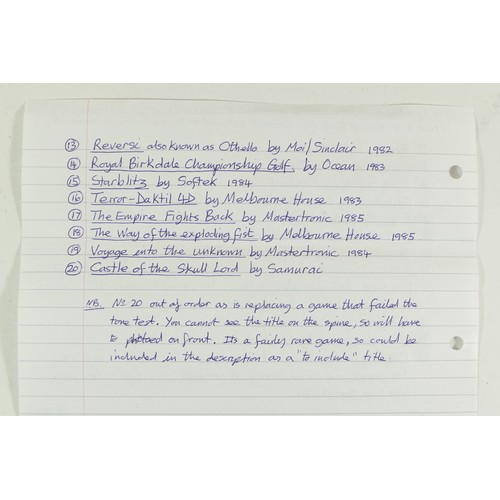 ⑬ Reversi also known as Othello by Moi/Sinclair 1982
⑭ Royal Birkdale Championship Golf, by Ocean 1983
⑮ Starblitz by Softek 1984
⑯ Terror-Daktil 4D by Melbourne House 1983
⑰ The Empire Fights Back by Mastertronic 1985
⑱ The Way of the exploding fist by Melbourne House 1985
⑲ Voyage into the unknown by Mastertronic 1984
⑳ Castle of the Skull Lord by Samurai
NB. No 20 out of order as is replacing a game that failed the
tone test. You cannot see the title on the spine, so will have
to on front. Its a fairly rare game, so could be
included in the description as a "to include" title